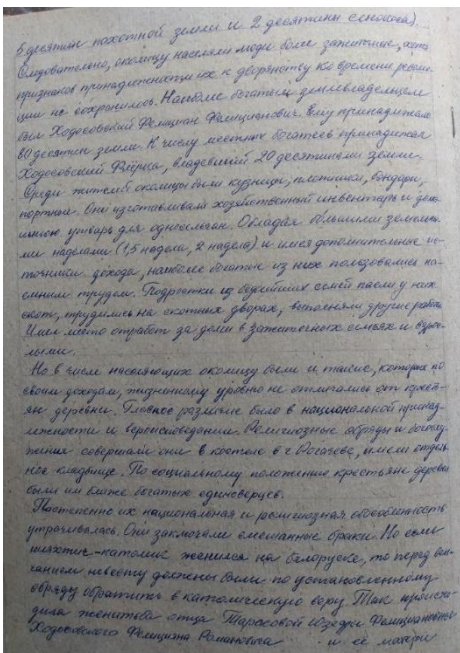 5 десятин пахотной земли и 2 десятины сенокоса).
Следовательно, околицу населяли люди более зажиточные, хотя
признаков принадлежности их к дворянству ко времени револю-
ции не сохранилось. Наиболее богатым землевладельцем
был Ходосовский Фелициан Фелицианович. Ему принадлежало
80 десятин земли. К числу местных богатеев принадлежал
Ходосовский, владевший 20 десятинами земли.
Среди жителей околицы были кузнецы, плотники, бондари,
портные. Они изготавливали хозяйственный инвентарь и дома-
шнюю утварь для односельчан. Обладая большими земельны-
ми наделами (1,5 надела, 2 надела) и имея дополнительные ис-
точники дохода, наиболее богатые из них пользовались на-
емным трудом. Подростки из беднейших семей пасли у них
скот, трудились на скотных дворах, выполняли другие работы.
Имел место отработ за долги в зажиточных семьях и взрос-
лыми.
Но в числе населяющих околицу были и такие, которые по
своим доходам, жизненному уровню не отличались от кресть-
ян деревни. Главное различие было в национальной принад-
лежности и вероисповедании. Религиозные обряды и богослу-
жения совершали они в костеле в г. Рогачеве, имели отдель-
ное кладбище. По социальному положению крестьяне деревни
были им ближе богатых единоверцев.
Постепенно их национальная и религиозная обособленность
утрачивалась. Они заключали смешанные браки. Но если
шляхтич-католик женился на белоруске, то перед вен-
чанием невесту должны были по установленному
обряду обратить в католическую веру. Так происхо-
дила женитьба отца Тарасовой Фелициановны
Ходосовского Фелициана Романовича и её матери